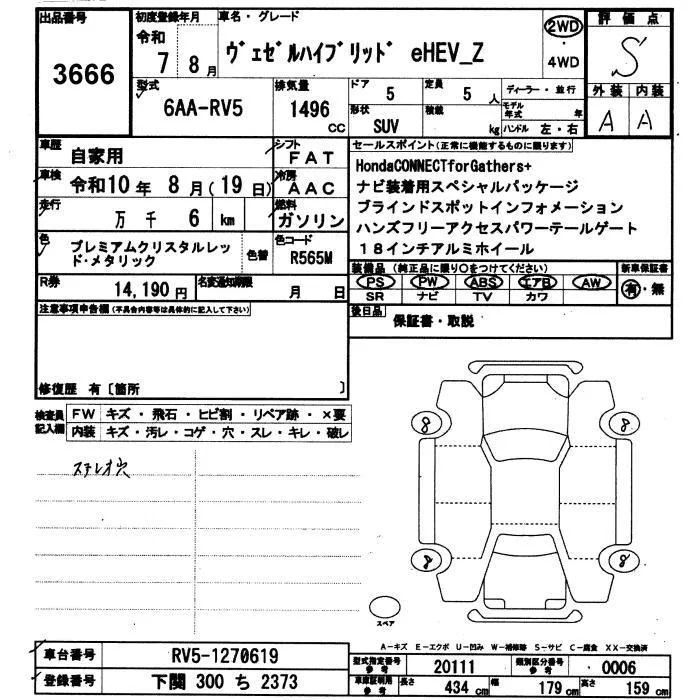 出品番号
3666
初度登録年月
令和
7 8 月
車名・グレード
ヴェゼルハイブリッド eHEV_Z
2WD
・
4WD
評価点
S
外装 内装
A A
型式
6AA-RV5
排気量
1496
CC
ドア
5
定員
5 人
ディーラー・並行
モデル年式 年
形状
SUV
積載
kg
ハンドル 左・右
車歴
自家用
シフト
FAT
車検
令和10 年 8 月(19 日)
冷房
AAC
走行
万 千 6 km
燃料
ガソリン
色
プレミアムクリスタルレッド・メタリック
色替
色コード
R565M
R券
14,190 円
名変通知期限
月 日
セールスポイント(正常に機能するものに限ります)
HondaCONNECTforGathers+
ナビ装着用スペシャルパッケージ
ブラインドスポットインフォメーション
ハンズフリーアクセスパワーテールゲート
18インチアルミホイール
装備品 (純正品に限り○をつけてください)
新車保証書
PS PW ABS エアB AW
有・無
SR ナビ TV カワ
後日品
保証書・取説
注意事項申告欄(不具合内容等は具体的に記入して下さい)
修復歴 有〔箇所 〕
検査員記入欄
FW キズ・飛石・ヒビ割・リペア跡・×要
内装 キズ・汚レ・コゲ・穴・スレ・キレ・破レ
ステレオ穴
8 8
8 8
スペア
A―キズ E―エクボ U―凹み W―補修跡 S―サビ C―腐食 XX―交換済
車台番号
RV5-1270619
登録番号
下関 300 ち 2373
型式指定番号
参考
20111
類別区分番号
参考
0006
車庫証明用
参考
長さ
434 cm
幅
179 cm
高さ
159 cm